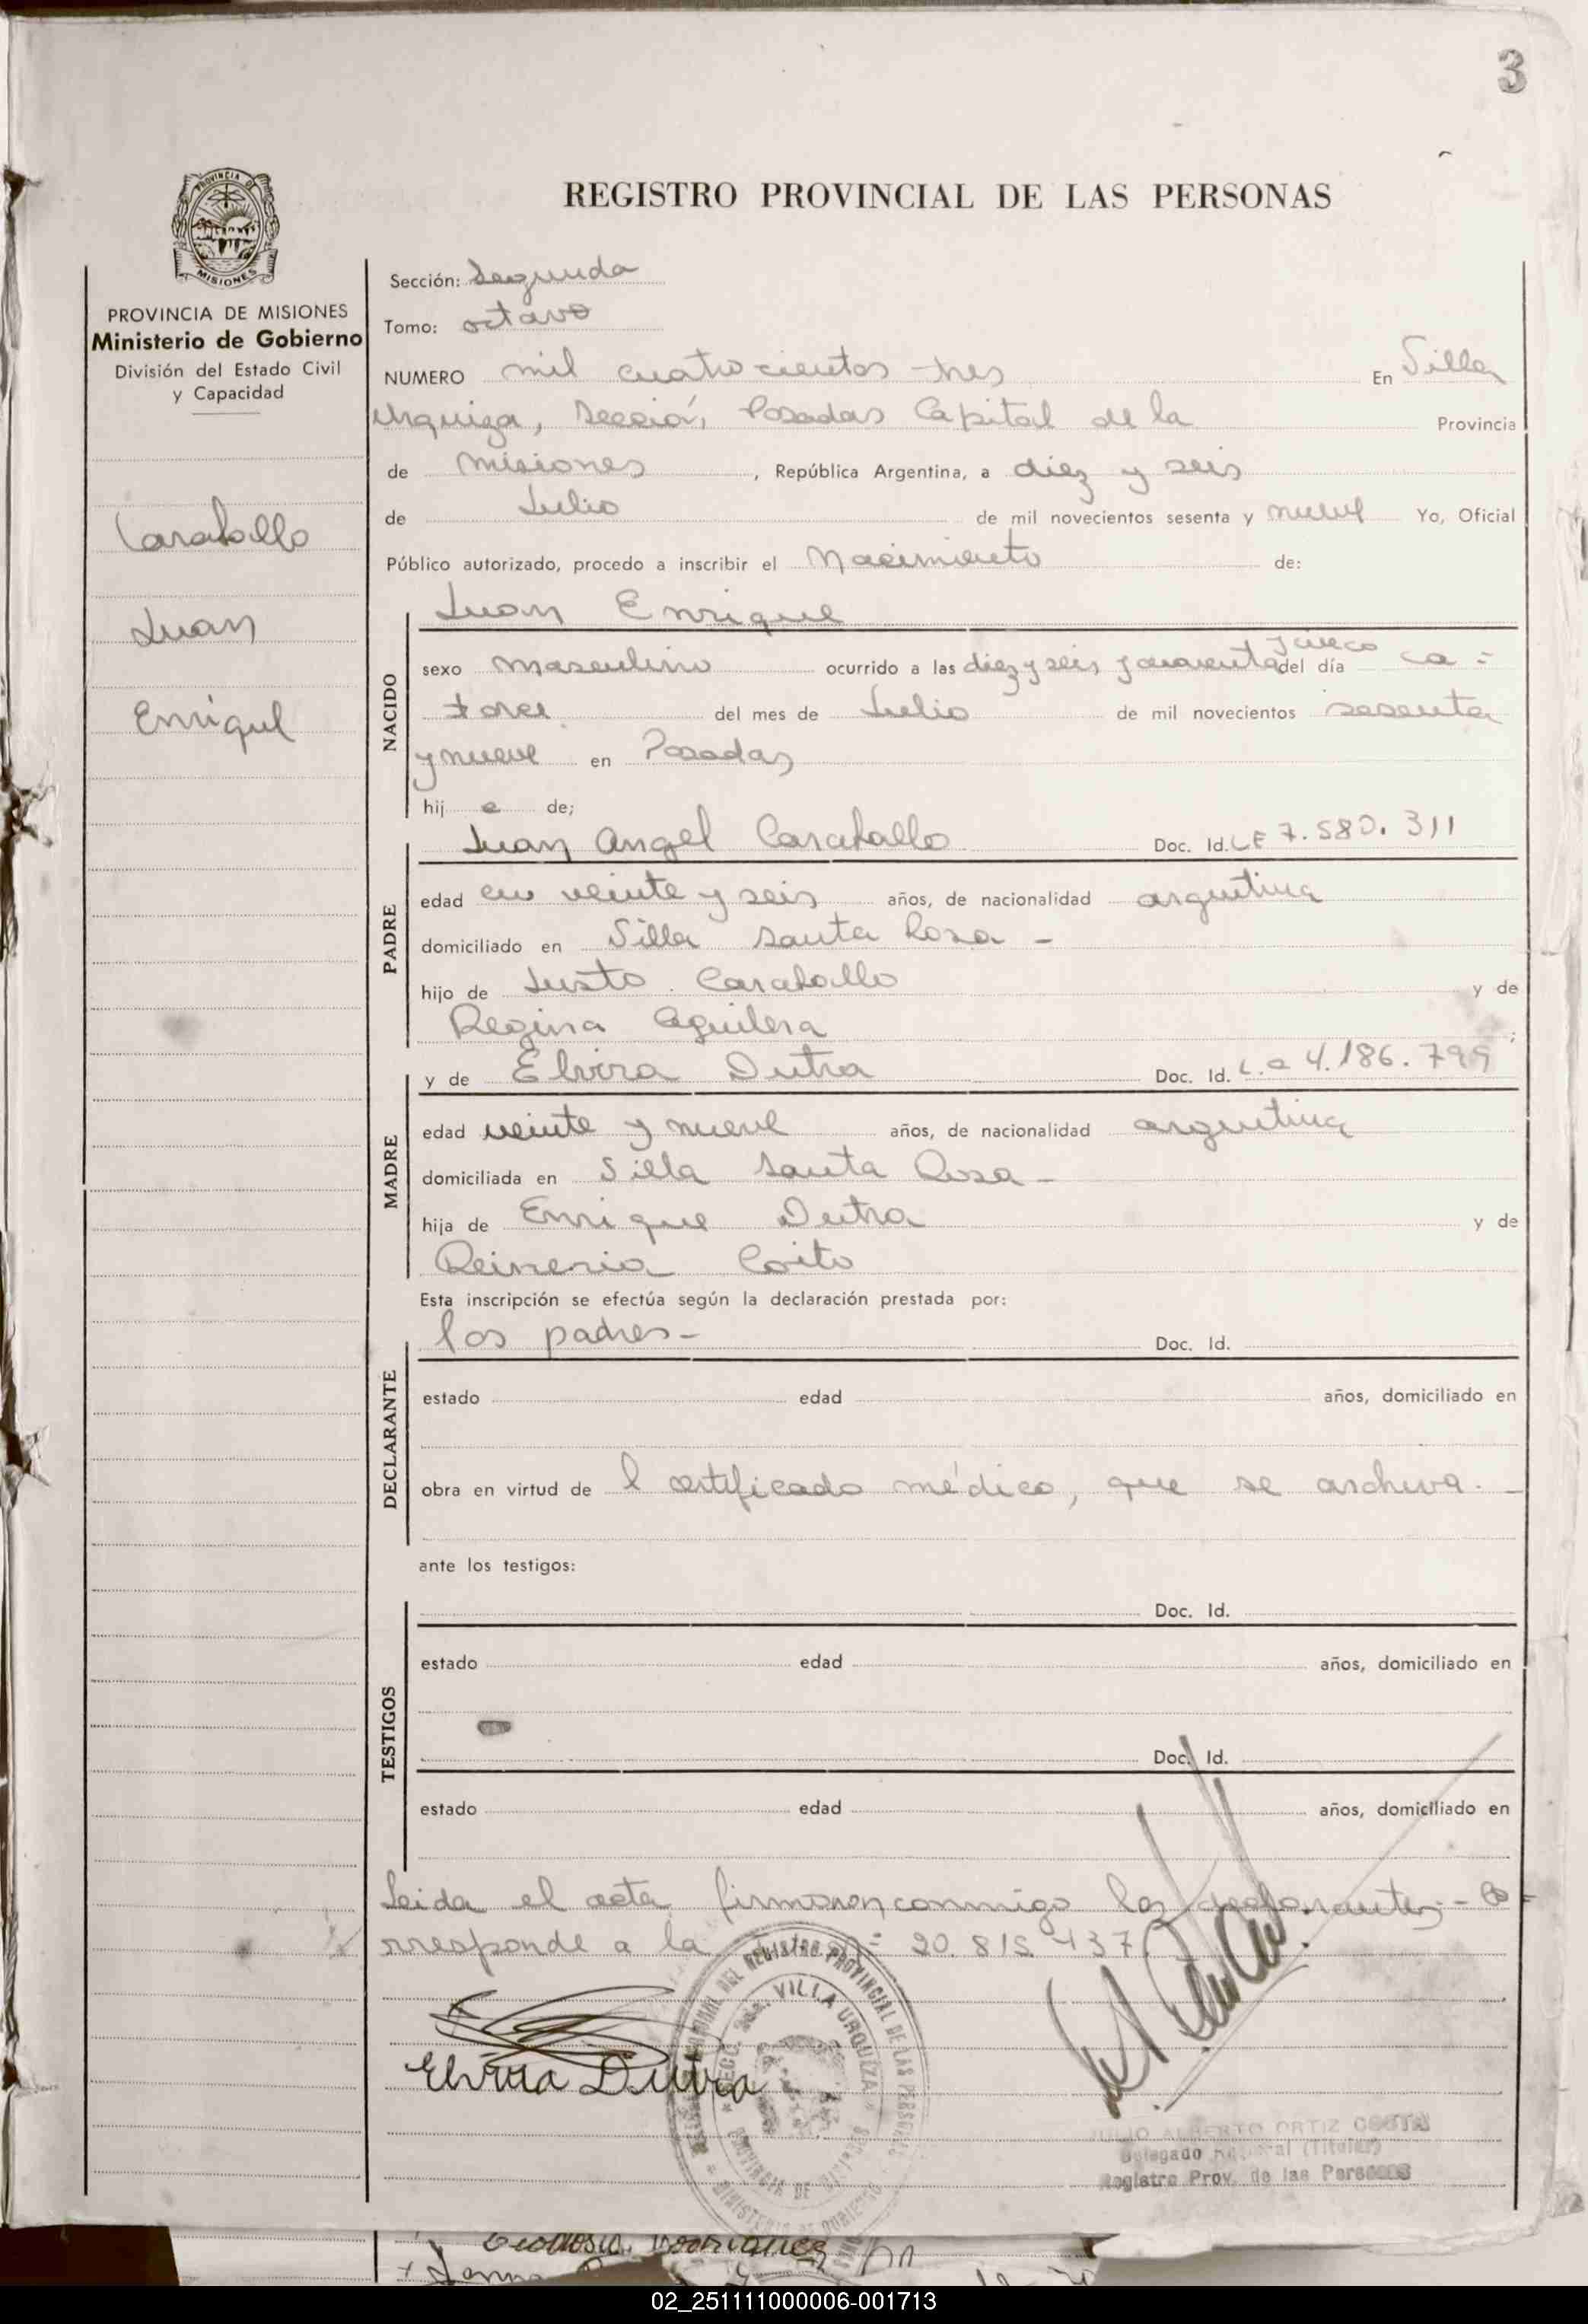 3
REGISTRO PROVINCIAL DE LAS PERSONAS
PROVINCIA DE MISIONES
PROVINCIA DE MISIONES
Ministerio de Gobierno
División del Estado Civil
y Capacidad
Caraballo
Juan
Enrique
Sección: Segunda
Tomo: octavo
NUMERO mil cuatrocientos tres En Villa
Urquiza, Sección, Posadas Capital de la Provincia
de Misiones, República Argentina, a diez y seis
de Julio de mil novecientos sesenta y nueve Yo, Oficial
Público autorizado, procedo a inscribir el Nacimiento de:
Juan Enrique
NACIDO
sexo masculino ocurrido a las diez y seis y cuarenta y cinco del día ca=
torce del mes de Julio de mil novecientos sesenta
y nueve en Posadas
hij o de;
Juan Angel Caraballo Doc. Id. LE 7.580.311
PADRE
edad veinte y seis años, de nacionalidad argentina
domiciliado en Villa Santa Rosa -
hijo de Justo Caraballo y de
Regina Aguilera
y de Elvira Dutra Doc. Id. L.C 4.186.799
MADRE
edad veinte y nueve años, de nacionalidad argentina
domiciliada en Villa Santa Rosa -
hija de Enrique Dutra y de
Esta inscripción se efectúa según la declaración prestada por:
los padres - Doc. Id.
DECLARANTE
estado edad años, domiciliado en
obra en virtud de l certificado médico, que se archiva. -
ante los testigos:
Doc. Id.
TESTIGOS
estado edad años, domiciliado en
Doc. Id.
estado edad años, domiciliado en
Leida el acta firmaron conmigo los declarantes.- Co=
rresponde a la 20.815.437
Elvira Dutra
DEL REGISTRO PROVINCIAL DE LAS PERSONAS
SECC. 2da. VILLA URQUIZA
PROVINCIA DE MISIONES
MINISTERIO DE GOBIERNO
JULIO ALBERTO ORTIZ COSTA
Delegado (Titular)
Registro Prov. de las Personas
02_251111000006-001713